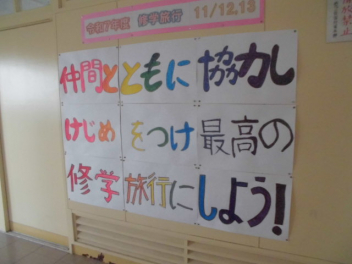 令和7年度 修学旅行 11/12,13
仲間とともに協力し
けじめをつけ最高の
修学旅行にしよう!